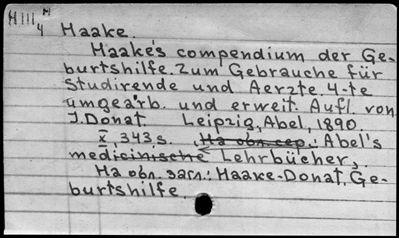 H III 4 H
Haake.
Haake's compendium der Ge-
burtshilfe. Zum Gebrauche für
Studirende und Aerzte. 4-te
umgearb. und erweit. Aufl. von
J. Donat Leipzig, Abel, 1890.
X, 343 s. На обл. сер.: Abel's
medicinische Lehrbücher,
На обл. загл.: Haake-Donat, Ge-
burtshilfe.